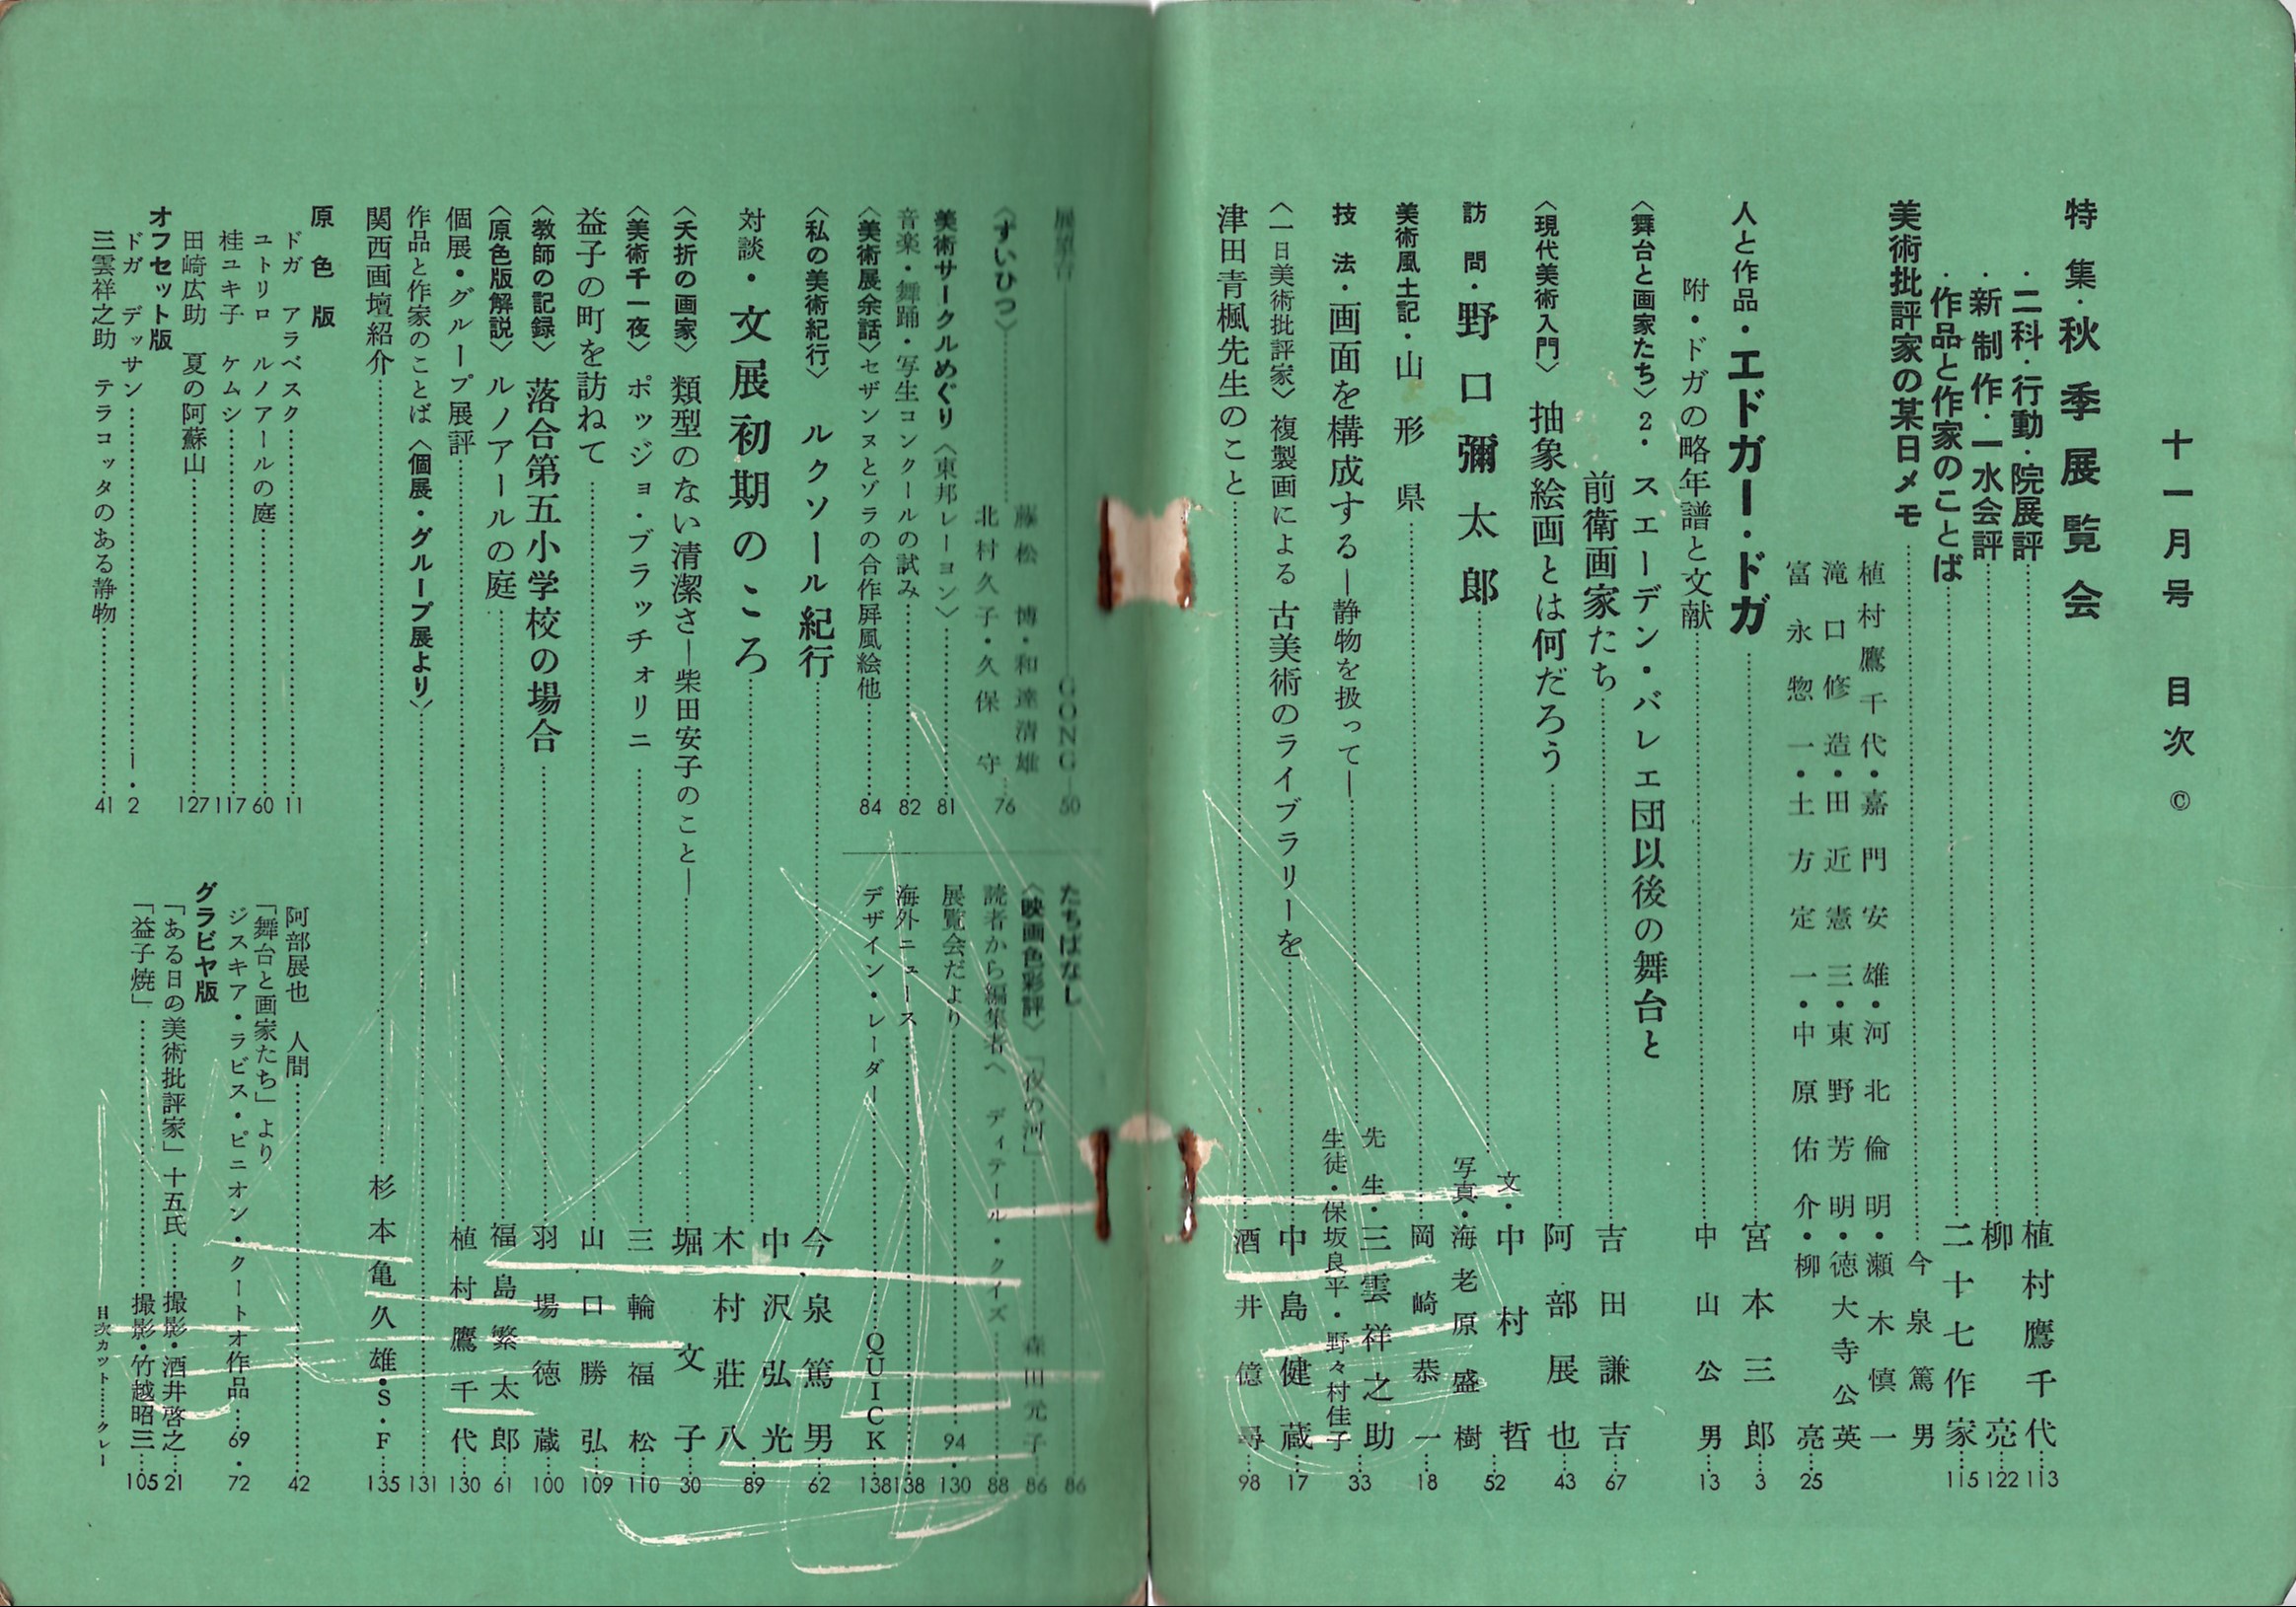 十一月号 目次 ©
特集・秋季展覧会
・二科・行動・院展評……植村鷹千代……113
・新制作・一水会評……柳亮……122
・作品と作家のことば……二十七作家……115
美術批評家の某日メモ……今泉篤男
植村鷹千代・嘉門安雄・河北倫明・瀬木慎一
滝口修造・田近憲三・東野芳明・徳大寺公英
富永惣一・土方定一・中原佑介・柳亮……25
人と作品・エドガー・ドガ……宮本三郎……3
附・ドガの略年譜と文献……中山公男……13
〈舞台と画家たち〉2・スエーデン・バレエ団以後の舞台と
前衛画家たち……吉田謙吉……67
〈現代美術入門〉抽象絵画とは何だろう……阿部展也……43
訪問・野口彌太郎……文・中村哲
写真・海老原盛樹……52
美術風土記・山形県……岡崎恭一……18
技法・画面を構成する―静物を扱って―……先生・三雲祥之助
生徒・保坂良平・野々村佳子……33
〈一日美術批評家〉複製画による古美術のライブラリーを……中島健蔵……17
津田青楓先生のこと……酒井億尋……98
展望台――GONG――50
〈ずいひつ〉……藤松博・和達清雄
北村久子・久保守……76
美術サークルめぐり〈東邦レーヨン〉……81
音楽・舞踊・写生コンクールの試み……82
〈美術展余話〉セザンヌとゾラの合作屏風絵他……84
たちばなし……86
〈映画色彩評〉「夜の河」……森田元子……86
読者から編集者へ ディテール・クイズ……88
展覧会だより……94・130
海外ニュース……138
デザイン・レーダー……QUICK……138
〈私の美術紀行〉ルクソール紀行……今泉篤男……62
対談・文展初期のころ……中沢弘光
木村荘八……89
〈夭折の画家〉類型のない清潔さ―柴田安子のこと―……堀文子……30
〈美術千一夜〉ポッジョ・ブラッチォリニ……三輪福松……110
益子の町を訪ねて……山口勝弘……109
〈教師の記録〉落合第五小学校の場合……羽場徳蔵……100
〈原色版解説〉ルノアールの庭……福島繁太郎……61
個展・グループ展評……植村鷹千代……130
作品と作家のことば〈個展・グループ展より〉……131
関西画壇紹介……杉本亀久雄・S・F……135
原色版
ドガ アラベスク……11
ユトリロ ルノアールの庭……60
桂ユキ子 ケムシ……117
田崎広助 夏の阿蘇山……127
オフセット版
ドガ デッサン……1・2
三雲祥之助 テラコッタのある静物……41
阿部展也 人間……42
「舞台と画家たち」より
ジスキア・ラビス・ピニオン・クートオ作品……69・72
グラビヤ版
「ある日の美術批評家」十五氏……撮影・酒井啓之……21
「益子焼」……撮影・竹越昭三……105
目次カット……クレー